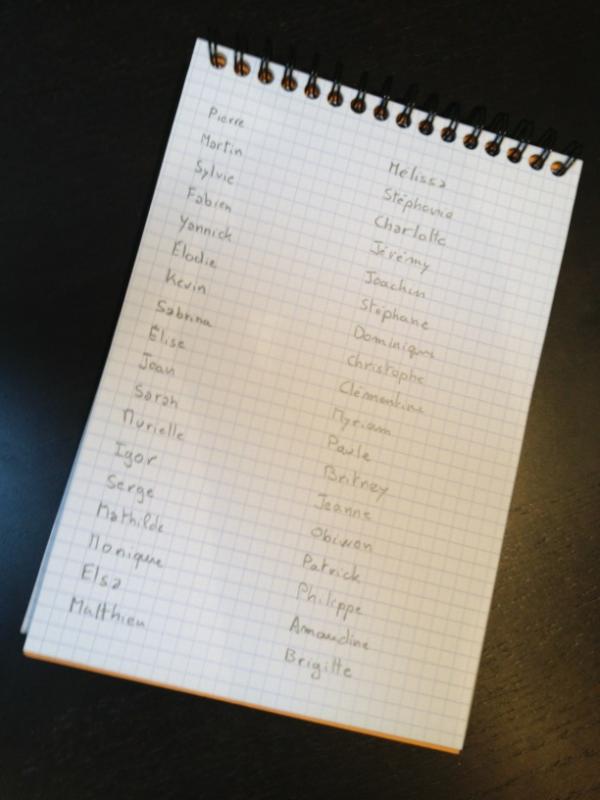 Pierre
Martin
Sylvie
Fabien
Yannick
Élodie
Kevin
Sabrina
Élise
Joan
Sarah
Murielle
Igor
Serge
Mathilde
Monique
Elsa
Matthieu
Mélissa
Stéphanie
Charlotte
Jérémy
Joachim
Stéphane
Dominique
Christophe
Clémentine
Myriam
Paule
Britney
Jeanne
Obiwan
Patrick
Philippe
Amandine
Brigitte